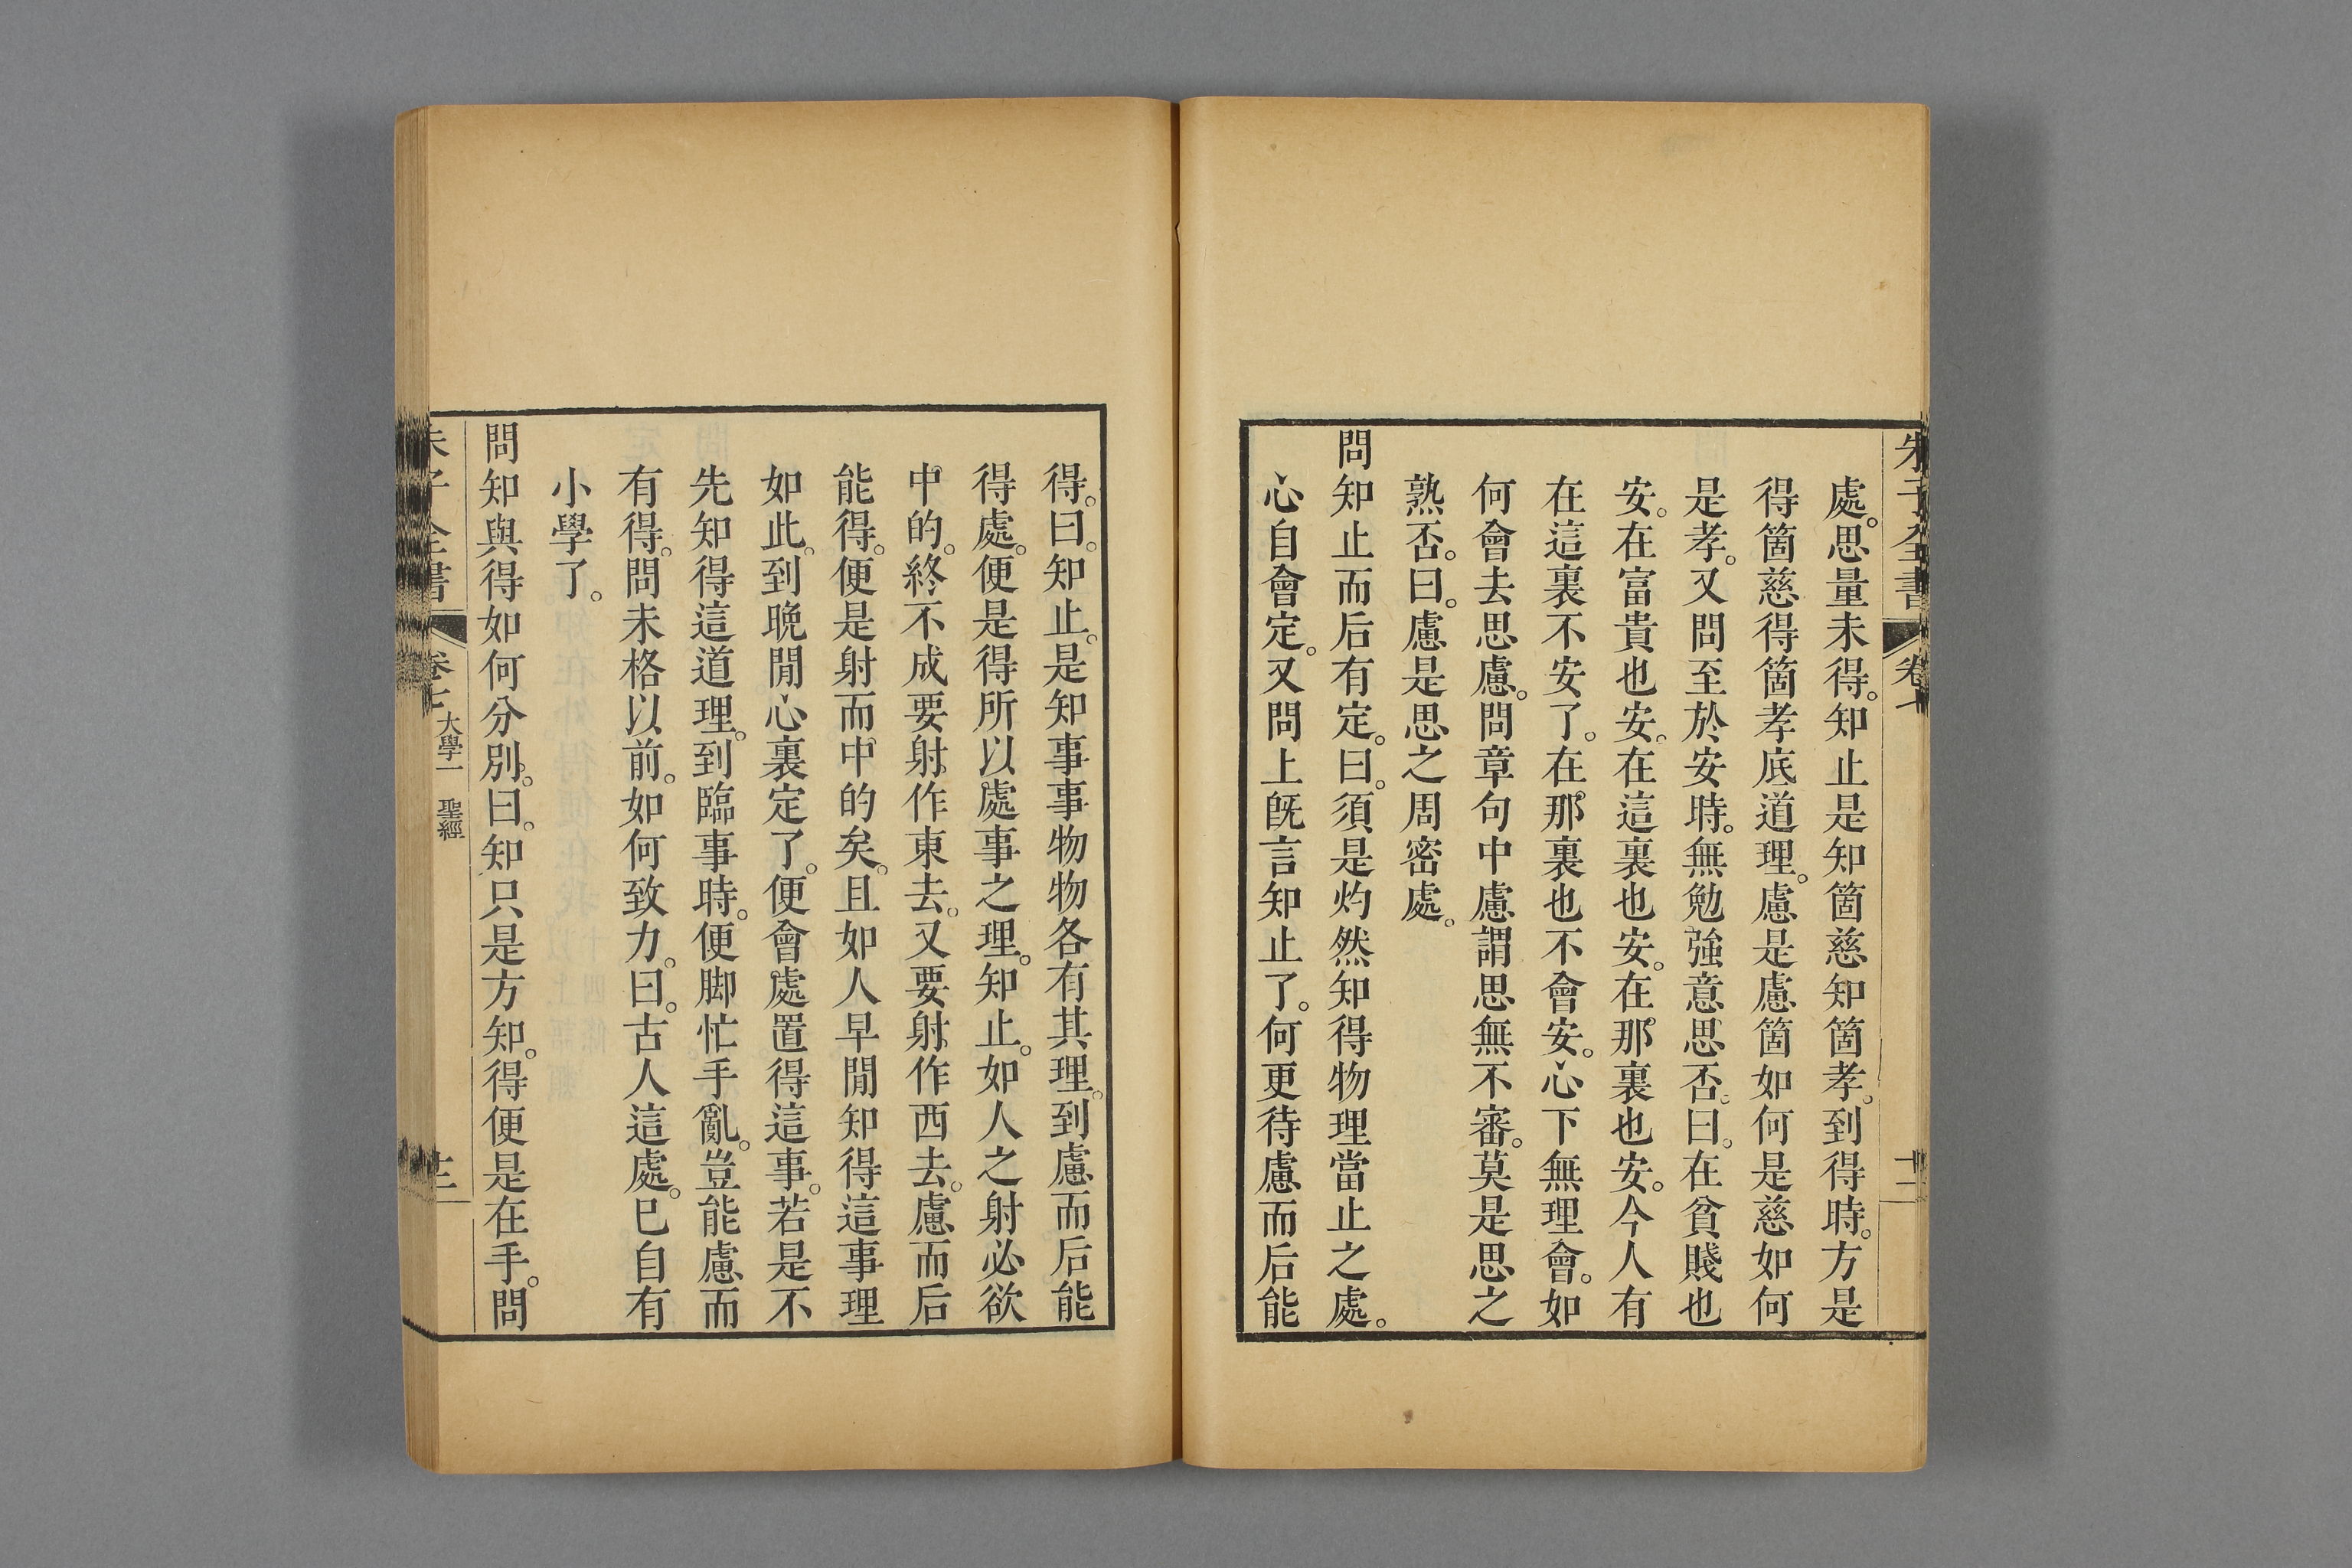 朱子全書 卷七 十二
處。思量未得。知止是知箇慈知箇孝。到得時。方是
得箇慈得箇孝底道理。慮是慮箇如何是慈如何
是孝。又問至於安時。無勉強意思否。曰。在貧賤也
安。在富貴也安。在這裏也安。在那裏也安。今人有
在這裏不安了。在那裏也不會安。心下無理會。如
何會去思慮。問章句中慮謂思無不審。莫是思之
熟否。曰。慮是思之周密處。
問知止而后有定。曰。須是灼然知得物理當止之處。
心自會定。又問上旣言知止了。何更待慮而后能
得。曰。知止。是知事事物物各有其理。到慮而后能
得處。便是得所以處事之理。知止。如人之射必欲
中的。終不成要射作東去。又要射作西去。慮而后
能得。便是射而中的矣。且如人早閒知得這事理
如此。到晚閒心裏定了。便會處置得這事。若是不
先知得這道理。到臨事時。便脚忙手亂。豈能慮而
有得。問未格以前。如何致力。曰。古人這處。已自有
小學了。
問知與得如何分別。曰。知只是方知。得便是在手。問
朱子全書 卷七 大學一 聖經